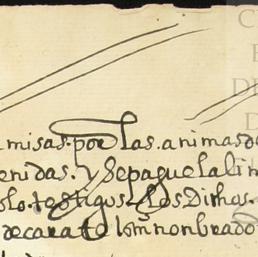 misas. por las. animas de
enidas. y se pague la lim
los. testigos. los dichos.
de carate lo nonbrado